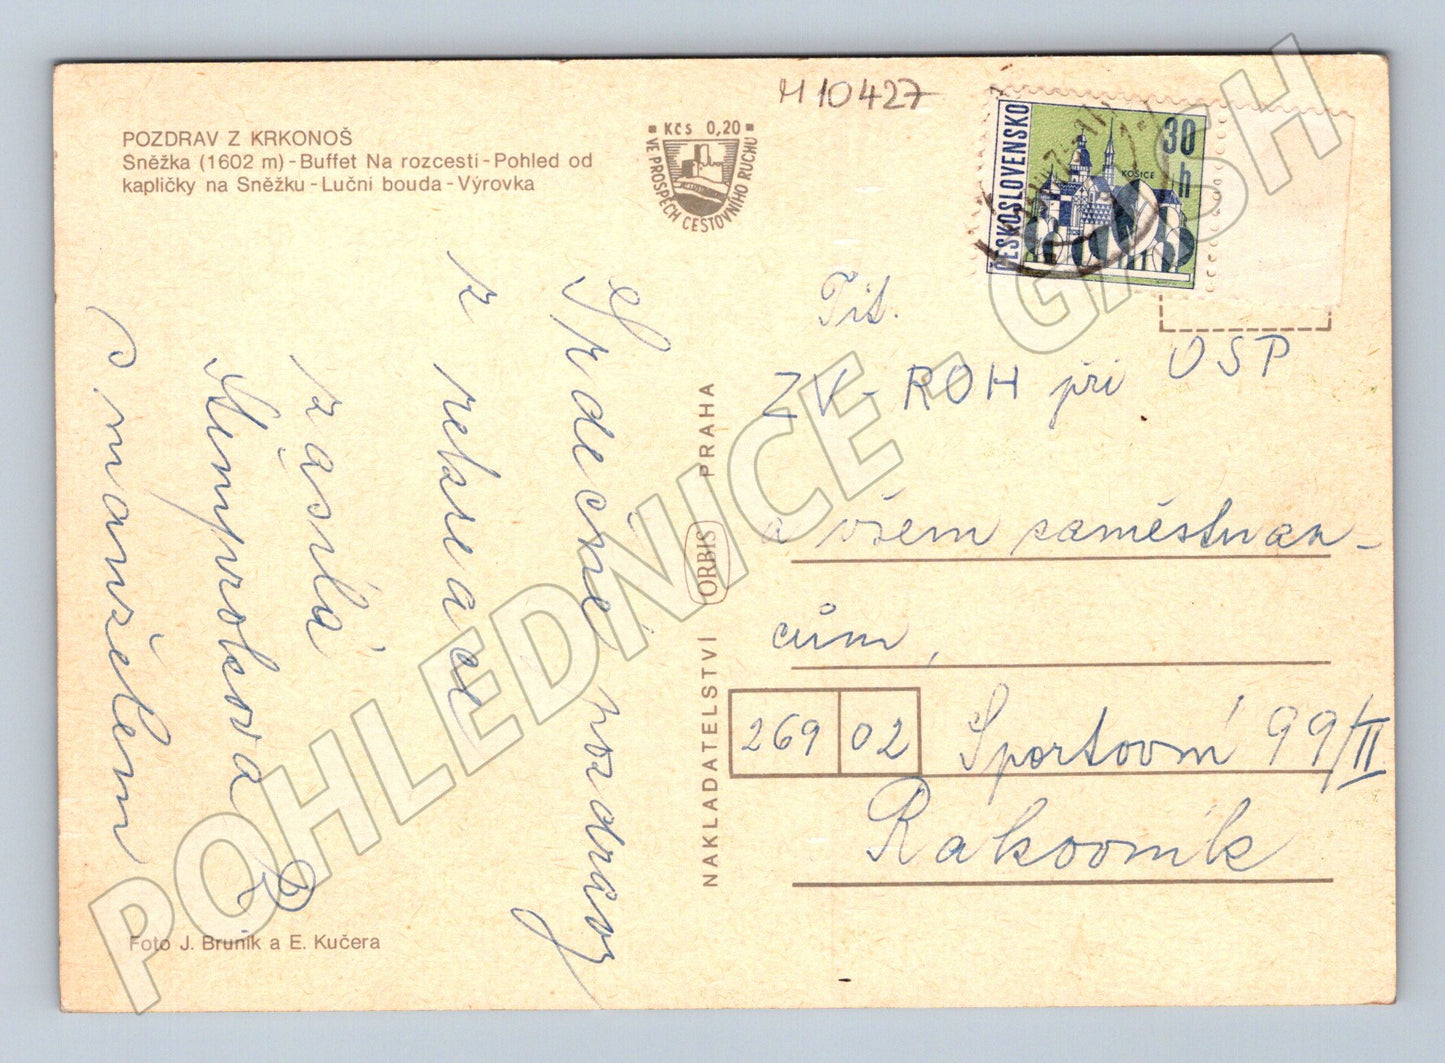 POZDRAV Z KRKONOŠ
Sněžka (1602 m) - Buffet Na rozcestí - Pohled od
kapličky na Sněžku - Luční bouda - Výrovka
Kčs 0,20
VE PROSPĚCH CESTOVNÍHO RUCHU
M 10427
ČESKOSLOVENSKO
30 h
KOŠICE
Srdečné pozdravy
z rekreace
zasílá
s manželem
Foto J. Bruník a E. Kučera
NAKLADATELSTVÍ ORBIS PRAHA
Tit.
ZV-ROH při OSP
a všem zaměstnan-
cům,
269 02 Sportovní 99/II
Rakovník
POHLEDNICE - GASH